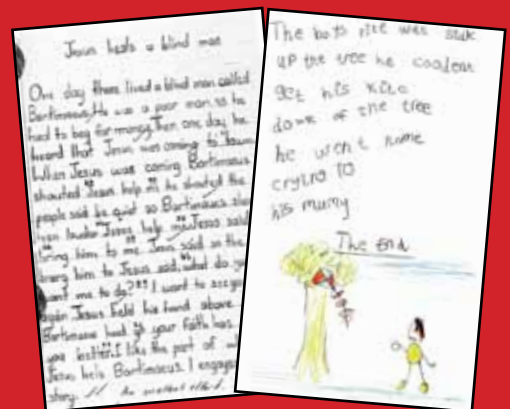 Jesus heals a blind man
One day there lived a blind man called
Bartimaeus. He was a poor man so he
had to beg for money. Then one day he
heard that Jesus was coming to
When Jesus was coming Bartimaeus
shouted "Jesus help" he shouted the
people said be quiet so Bartimaeus
even louder "Jesus help me" Jesus said
"bring him to me" Jesus said so they
bring him to Jesus said, "what do you
want me to do?" "I want to see
again Jesus held his hand above
Bartimaeus head your faith has
you I like the part of
Jesus Bartimaeus. I
story.
The boys kite was stuk
up the tree he
get his kite
of the tree
he went home
to
his mumy
The End